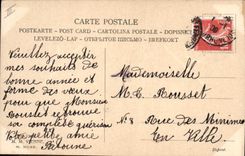 CARTE POSTALE
POSTKARTE - POST CARD - CARTOLINA POSTALE - DOPISNICE
LEVELEZŐ-LAP - ОТКРЫТОЕ ПИСЬМО - BRIEFKORT
Veuillez accepter
mes souhaits de
bonne année et
forme des vœux
pour que Monsieur
Rousset retrouve
sa complète guérison
Votre petite amie
M. M. VIENNE
Mademoiselle
M. C. Rousset
N° 8 Rue des Minimes
En Ville